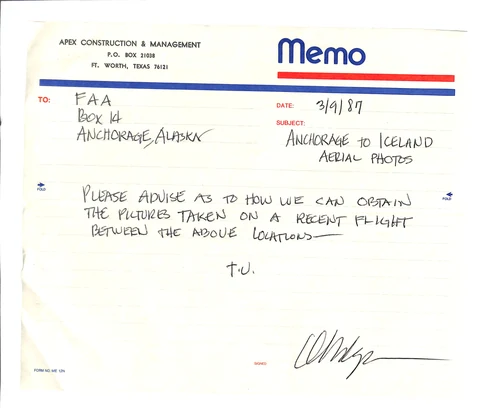 APEX CONSTRUCTION & MANAGEMENT
P.O. BOX 21038
FT. WORTH, TEXAS 76121
Memo
TO:
FAA
BOX 14
ANCHORAGE, ALASKA
DATE: 3/9/87
SUBJECT:
ANCHORAGE TO ICELAND
AERIAL PHOTOS
FOLD
FOLD
PLEASE ADVISE AS TO HOW WE CAN OBTAIN
THE PICTURES TAKEN ON A RECENT FLIGHT
BETWEEN THE ABOVE LOCATIONS—
T.U.
SIGNED